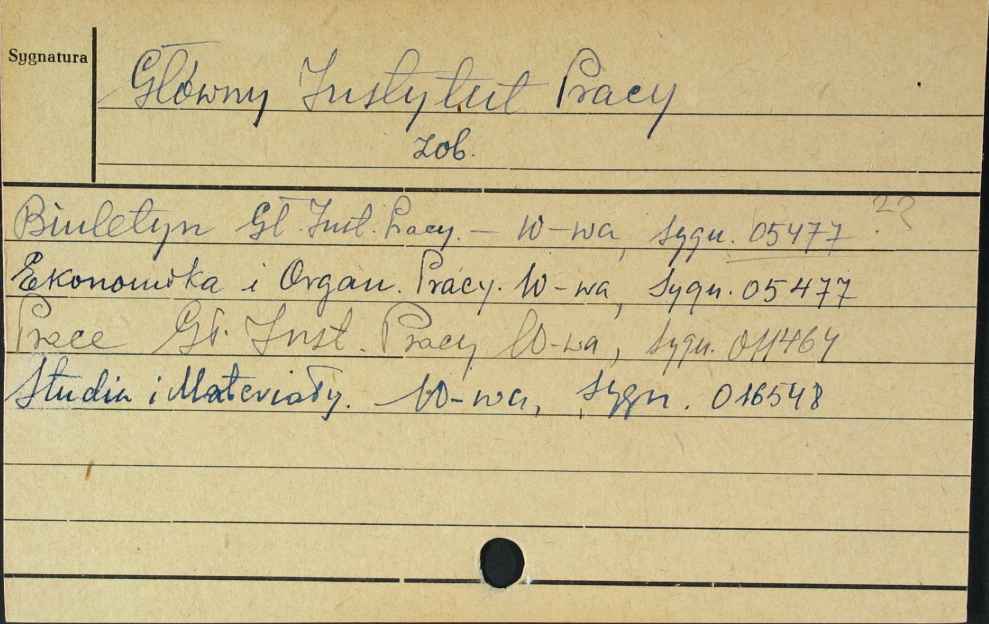 Sygnatura
Główny Instytut Pracy
zob.
Biuletyn Gł. Inst. Pracy. – W-wa, sygn. 05477 22
Ekonomika i Organ. Pracy. W-wa, sygn. 05477
Prace Gł. Inst. Pracy W-wa, sygn. 011464
Studia i Materiały. W-wa, sygn. 016548